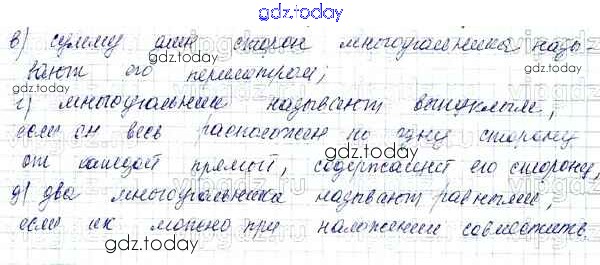 gdz.today
в) сумму длин сторон многоугольника назы
gdz.today
вают его периметром;
gdz.today
г) многоугольник называют выпуклым,
если он весь расположен по одну сторону
от каждой прямой, содержащей его сторону,
gdz.today
д) два многоугольника называют равными,
если их можно при наложении совместить
gdz.today